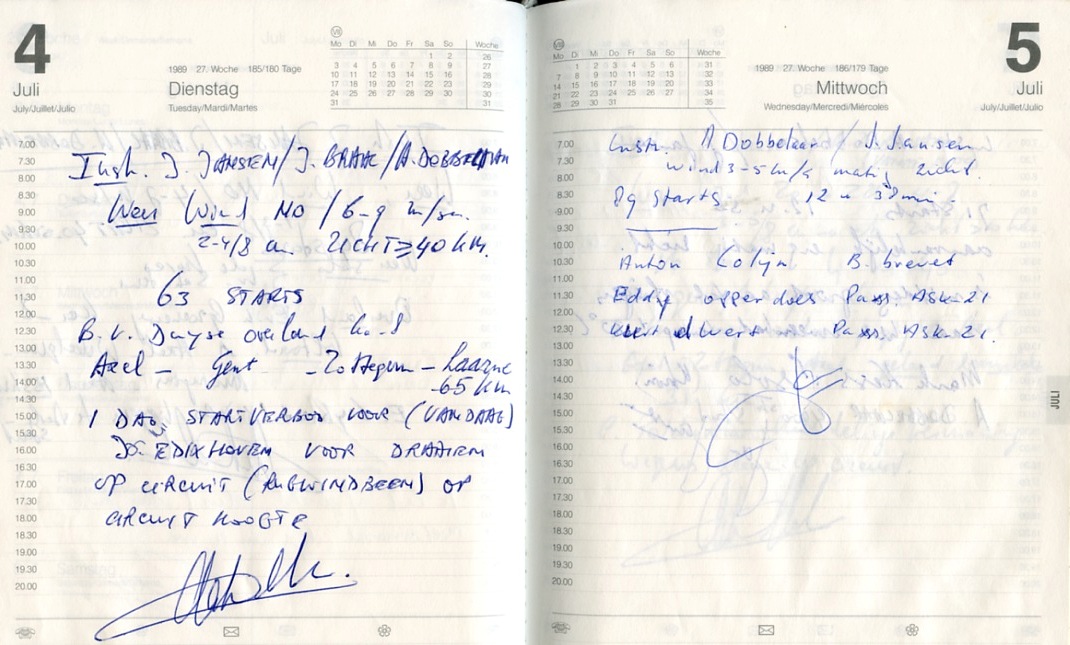 4
Juli
July/Juillet/Julio
1989 27. Woche 185/180 Tage
Dienstag
Tuesday/Mardi/Martes
VII
Mo Di Mi Do Fr Sa So Woche
1 2 26
3 4 5 6 7 8 9 27
10 11 12 13 14 15 16 28
17 18 19 20 21 22 23 29
24 25 26 27 28 29 30 30
31 31
7.00
7.30
8.00
8.30
9.00
9.30
10.00
10.30
11.00
11.30
12.00
12.30
13.00
13.30
14.00
14.30
15.00
15.30
16.00
16.30
17.00
17.30
18.00
18.30
19.00
19.30
20.00
Instr. J. JANSEN / J. BRAHE / A. DOBBELAAR
Weer Wind NO / 6-9 m/sec.
2-4/8 cu. ZICHT ≥ 40 KM.
63 STARTS
B. v. Duyse overland
Axel – Gent – Zottegem – Laarne
65 km
1 DAG STARTVERBOD VOOR (VANDAAG)
EDIXHOVEN VOOR DRAAIEN
OP CIRCUIT (RUGWINDBEEN) OP
CIRCUIT HOOGTE
VIII
Mo Di Mi Do Fr Sa So Woche
1 2 3 4 5 6 31
7 8 9 10 11 12 13 32
14 15 16 17 18 19 20 33
21 22 23 24 25 26 27 34
28 29 30 31 35
1989 27. Woche 186/179 Tage
Mittwoch
Wednesday/Mercredi/Miércoles
5
Juli
July/Juillet/Julio
7.00
7.30
8.00
8.30
9.00
9.30
10.00
10.30
11.00
11.30
12.00
12.30
13.00
13.30
14.00
14.30
15.00
15.30
16.00
16.30
17.00
17.30
18.00
18.30
19.00
19.30
20.00
Instr. A Dobbelaar / J. Jansen
wind 3-5 m/s matig zicht.
89 Starts 12 u 38 min.
Anton Colijn B. brevet
Eddy opperdoes Pass. ASK-21
Pass. ASK-21.
JULI